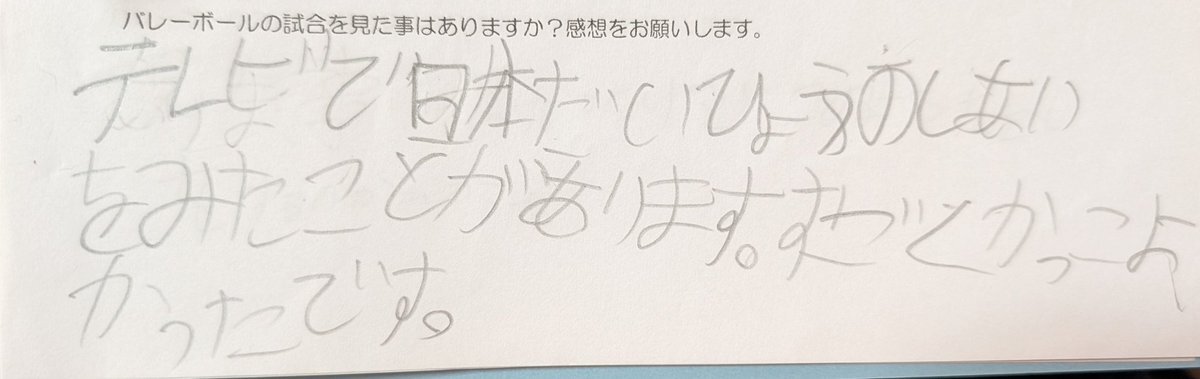 バレーボールの試合を見た事はありますか？感想をお願いします。
テレビで日本だいひょうのしあい
をみたことがあります。すごくかっこよ
かったです。